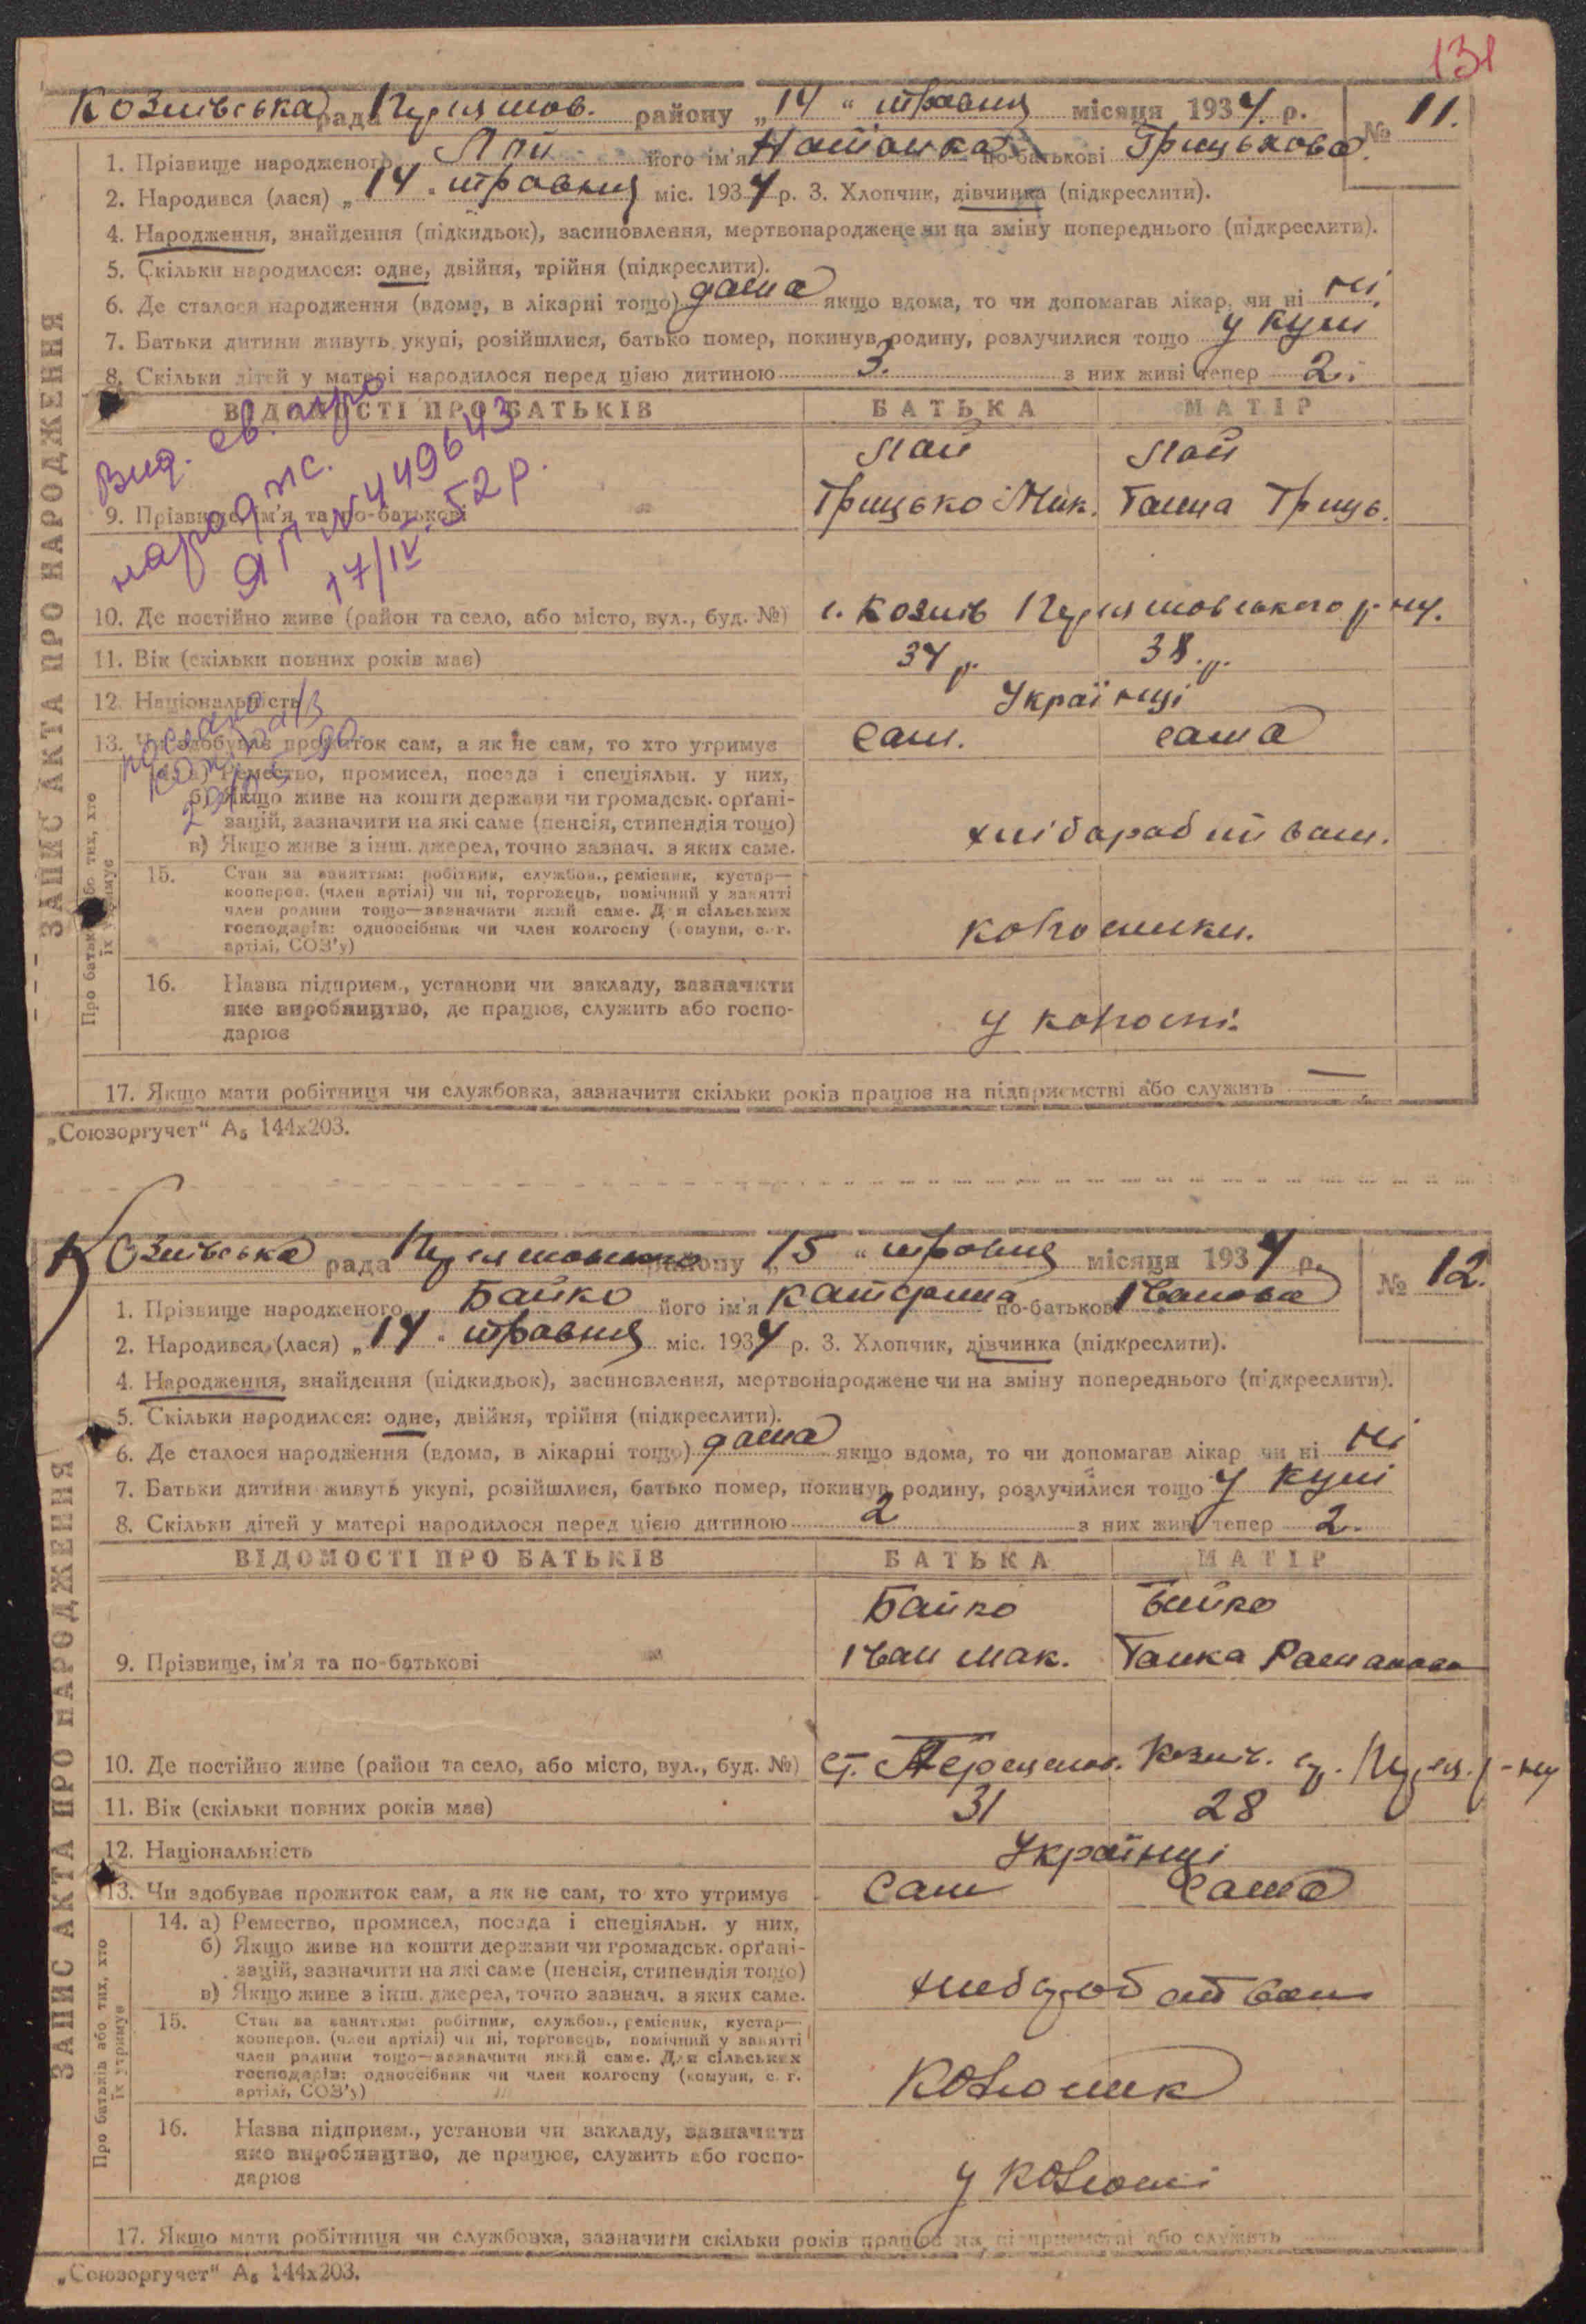 131
рада района „14“ травня місяця 1934 р. № 11.
1. Прізвище народженого Лай його ім'я по-батькові Грицькова
2. Народився (лася) „14“ травня міс. 1934 р. 3. Хлопчик, дівчинка (підкреслити).
4. Народження, знайдення (підкидьок), засиновлення, мертвонароджене чи на зміну попереднього (підкреслити).
5. Скільки народилося: одне, двійня, трійня (підкреслити).
6. Де сталося народження (вдома, в лікарні тощо) дома якщо вдома, то чи допомагав лікар, чи ні ні
7. Батьки дитини живуть укупі, розійшлися, батько помер, покинув родину, розлучилися тощо у купі
8. Скільки дітей у матері народилося перед цією дитиною 3. з них живі тепер 2.
ВІДОМОСТІ ПРО БАТЬКІВ БАТЬКА МАТІР
Вид. св. про
народж.
ЯП № 449643
17/IV-52 р.
Лай Лай
9. Прізвище, ім'я та по-батькові Грицько Мик. Ганна Гриць.
10. Де постійно живе (район та село, або місто, вул., буд. №) с.
11. Вік (скільки повних років має) 34 р. 38 р.
12. Національність Українці
13. Чи здобував прожиток сам, а як не сам, то хто утримує Сам. сама
14. а) Ремество, промисел, посада і спеціяльн. у них,
б) Якщо живе на кошти держави чи громадськ. орґані-
зацій, зазначити на які саме (пенсія, стипендія тощо)
в) Якщо живе з інш. джерел, точно зазнач. з яких саме.
15. Стан за заняттям: робітник, службов., ремісник, кустар—
кооперов. (член артілі) чи ні, торговець, помічний у занятті
член родини тощо—зазначити який саме. Для сільських
господарів: одноосібник чи член колгоспу (комуни, с. г.
артілі, СОЗ'у)
16. Назва підприєм., установи чи закладу, зазначити
яке виробництво, де працює, служить або госпо-
дарює
17. Якщо мати робітниця чи службовка, зазначити скільки років працює на підприємстві або служить —
„Союзоргучет“ А₅ 144х203.
ЗАПИС АКТА ПРО НАРОДЖЕННЯ
Про батьків або тих, хто
їх утримує
рада району „15“ травня місяця 1934 р. № 12.
1. Прізвище народженого Байко його ім'я Катерина по-батькові Іванова
2. Народився (лася) „14“ травня міс. 1934 р. 3. Хлопчик, дівчинка (підкреслити).
4. Народження, знайдення (підкидьок), засиновлення, мертвонароджене чи на зміну попереднього (підкреслити).
5. Скільки народилося: одне, двійня, трійня (підкреслити).
6. Де сталося народження (вдома, в лікарні тощо) дома якщо вдома, то чи допомагав лікар чи ні ні
7. Батьки дитини живуть укупі, розійшлися, батько помер, покинув родину, розлучилися тощо у купі
8. Скільки дітей у матері народилося перед цією дитиною 2 з них живі тепер 2.
ВІДОМОСТІ ПРО БАТЬКІВ БАТЬКА МАТІР
Байко Байко
9. Прізвище, ім'я та по-батькові Іван Мак. Ганка Романова
10. Де постійно живе (район та село, або місто, вул., буд. №)
11. Вік (скільки повних років має) 31 28
12. Національність Українці
13. Чи здобував прожиток сам, а як не сам, то хто утримує Сам Сама
14. а) Ремество, промисел, посада і спеціяльн. у них,
б) Якщо живе на кошти держави чи громадськ. орґані-
зацій, зазначити на які саме (пенсія, стипендія тощо)
в) Якщо живе з інш. джерел, точно зазнач. з яких саме.
15. Стан за заняттям: робітник, службов., ремісник, кустар—
кооперов. (член артілі) чи ні, торговець, помічний у занятті
член родини тощо—зазначити який саме. Для сільських
господарів: одноосібник чи член колгоспу (комуни, с. г.
артілі, СОЗ'у)
16. Назва підприєм., установи чи закладу, зазначити
яке виробництво, де працює, служить або госпо-
дарює
17. Якщо мати робітниця чи службовка, зазначити скільки років працює на підприємстві або служить
„Союзоргучет“ А₅ 144х203.
ЗАПИС АКТА ПРО НАРОДЖЕННЯ
Про батьків або тих, хто
їх утримує